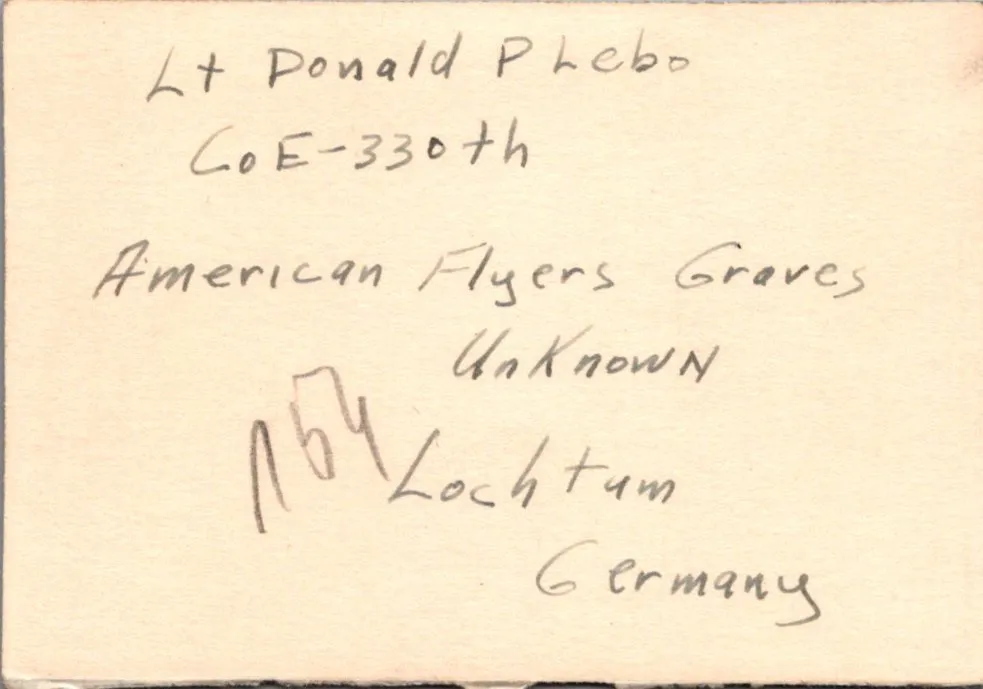 Lt Donald P Lebo
Co E-330th
American Flyers Graves
UnKnown
Lochtum
Germany